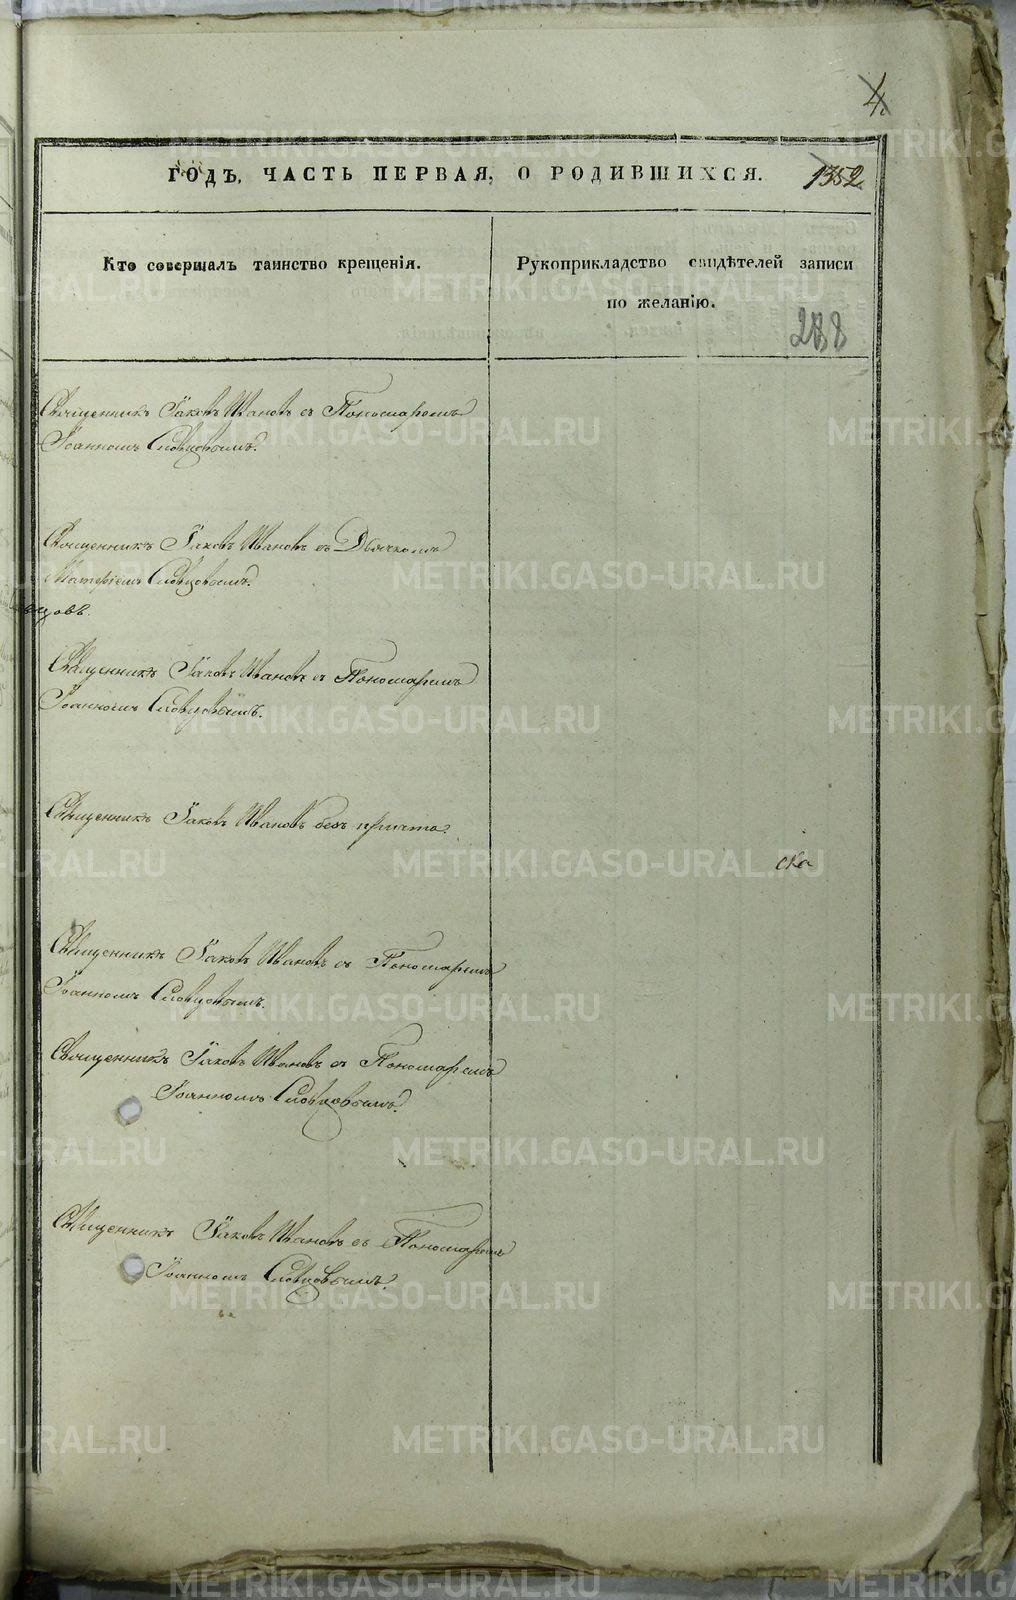 4.
ГОДЪ, ЧАСТЬ ПЕРВАЯ, О РОДИВШИХСЯ.
1352.
Кто совершалъ таинство крещенія.
Рукоприкладство свидѣтелей записи
по желанію.
288
Священникъ Іаковъ Ивановъ съ Пономаремъ
Іоанномъ Словцовымъ.
Священникъ Іаковъ Ивановъ съ Дьячкомъ
Словцовымъ.
Священникъ Іаковъ Ивановъ съ Пономаремъ
Іоанномъ Словцовымъ.
Священникъ Іаковъ Ивановъ безъ причта.
ска
Священникъ Іаковъ Ивановъ съ Пономаремъ
Іоанномъ Словцовымъ.
Священникъ Іаковъ Ивановъ съ Пономаремъ
Іоанномъ Словцовымъ.
Священникъ Іаковъ Ивановъ съ Пономаремъ
Іоанномъ Словцовымъ.
METRIKI.GASO-URAL.RU